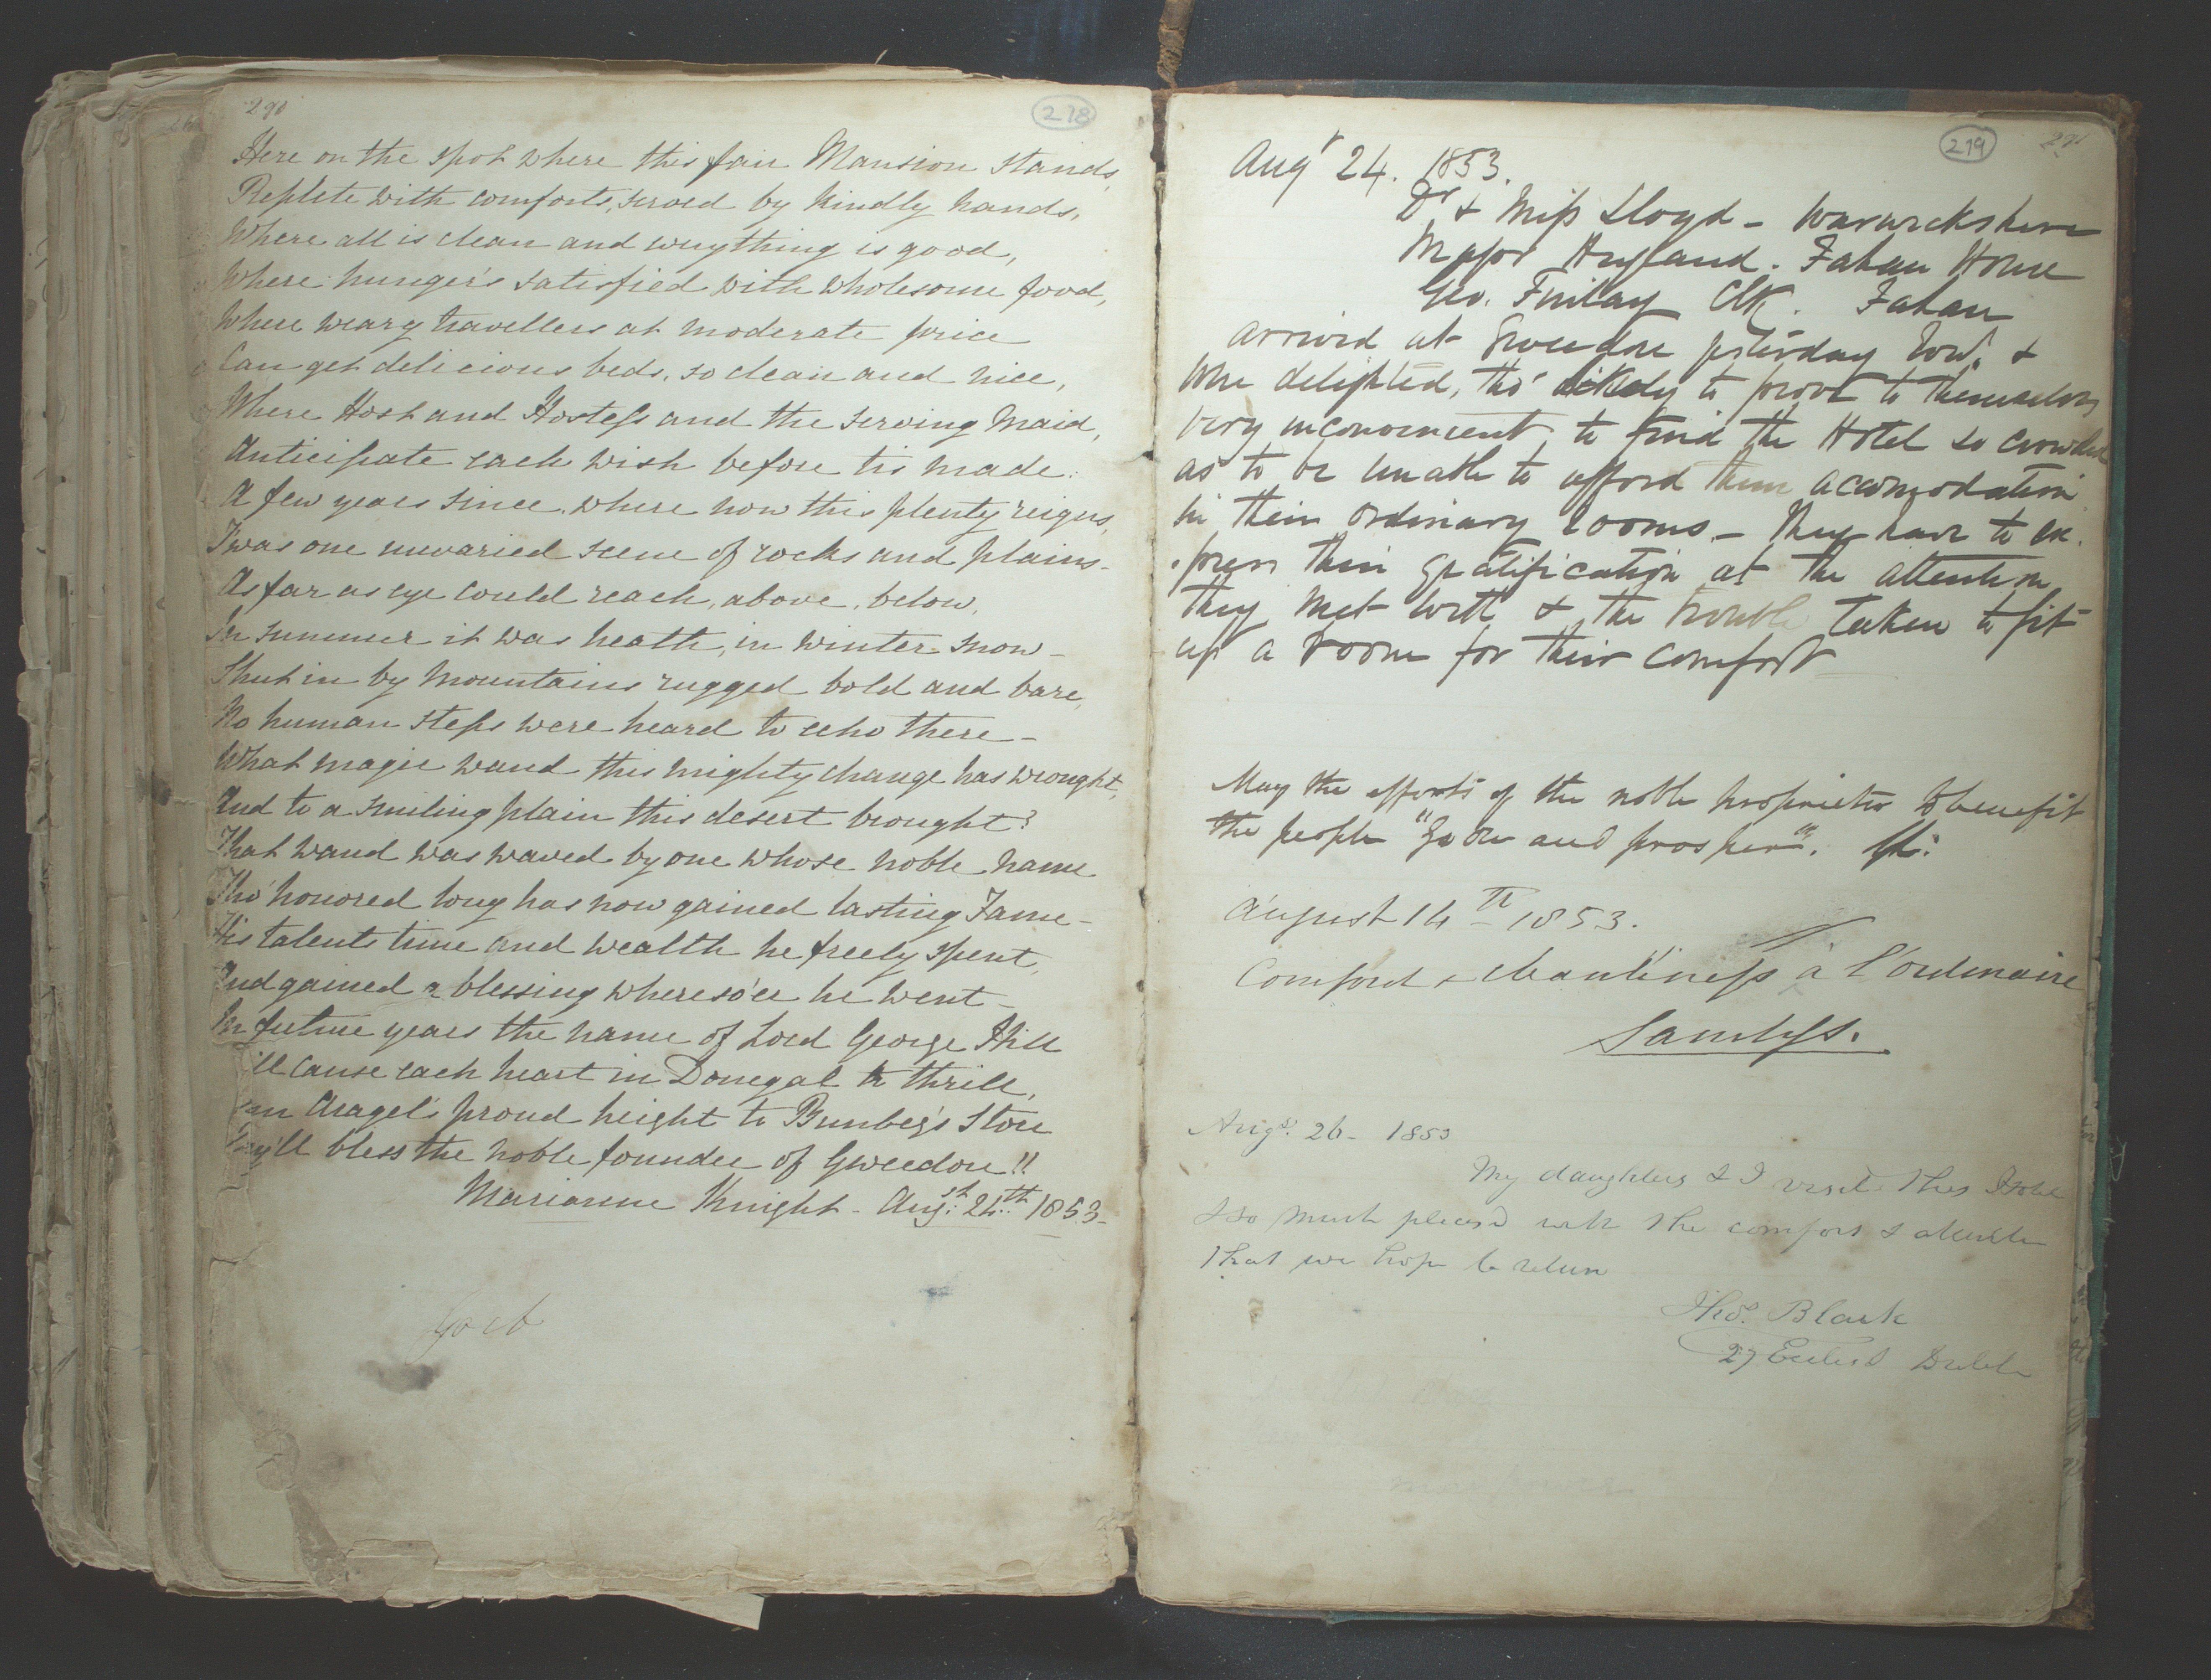 290
278
Here on the spot where this fair Mansion stands,
Replete with comforts, served by kindly hands,
Where all is clean and everything is good,
Where hunger's satisfied with wholesome food,
Where weary travellers at moderate price
Can get delicious beds, so clean and nice,
Where Host and Hostess and the serving Maid,
Anticipate each wish before tis made:
A few years since, where now this plenty reigns,
Twas one unvaried scene of rocks and plains-
As far as eye could reach, above, below,
In summer it was heath, in winter snow-
Shut in by mountains rugged bold and bare,
No human steps were heard to echo there-
What magic wand this mighty change has wrought,
And to a smiling plain this desert brought?
That wand was waved by one whose noble name
Tho' honored long has now gained lasting Fame-
His talents time and wealth he freely spent,
And gained a blessing wheresoe'er he went-
In future years the name of Lord George Hill
'ill cause each heart in Donegal to thrill,
Aragel's proud height to Bunbeg's Store
They'll bless the noble founder of Gweedore!!
Marianne Knight - Augst. 24th 1853-
219
291
Augt 24. 1853.
Dr & Miss Lloyd - Warwickshire
Major Fahan House
Geo. Finlay Clk. Fahan
arrived at Gweedore yesterday &
were delighted, tho' likely to prove to themselves
very inconvenient, to find the Hotel so crowded
as to be unable to afford them accomodation
in their ordinary rooms - They have to ex-
-press their gratification at the attention
they met with & the trouble taken to fit
up a room for their comfort
May the efforts of the noble proprietor to benefit
the people "go on and prosper".
August 14th 1853.
Comfort & cleanliness à l'ordinaire
Augst. 26 - 1853
My daughters & I visit this Hotel
& so much pleasd with the comfort &
that we hope to return
Thos. Black
27 Eccles St Dublin